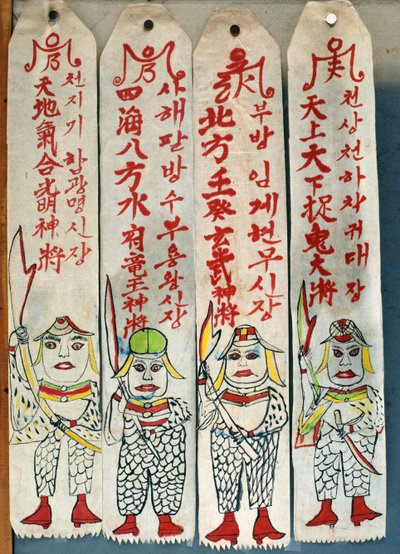 天地氣合光明神將
천지기합광명신장
四海八方水府竜王神將
사해팔방수부용왕신장
北方壬癸玄武神將
부방임계현무신장
天上天下捉鬼大將
천상천하착귀대장